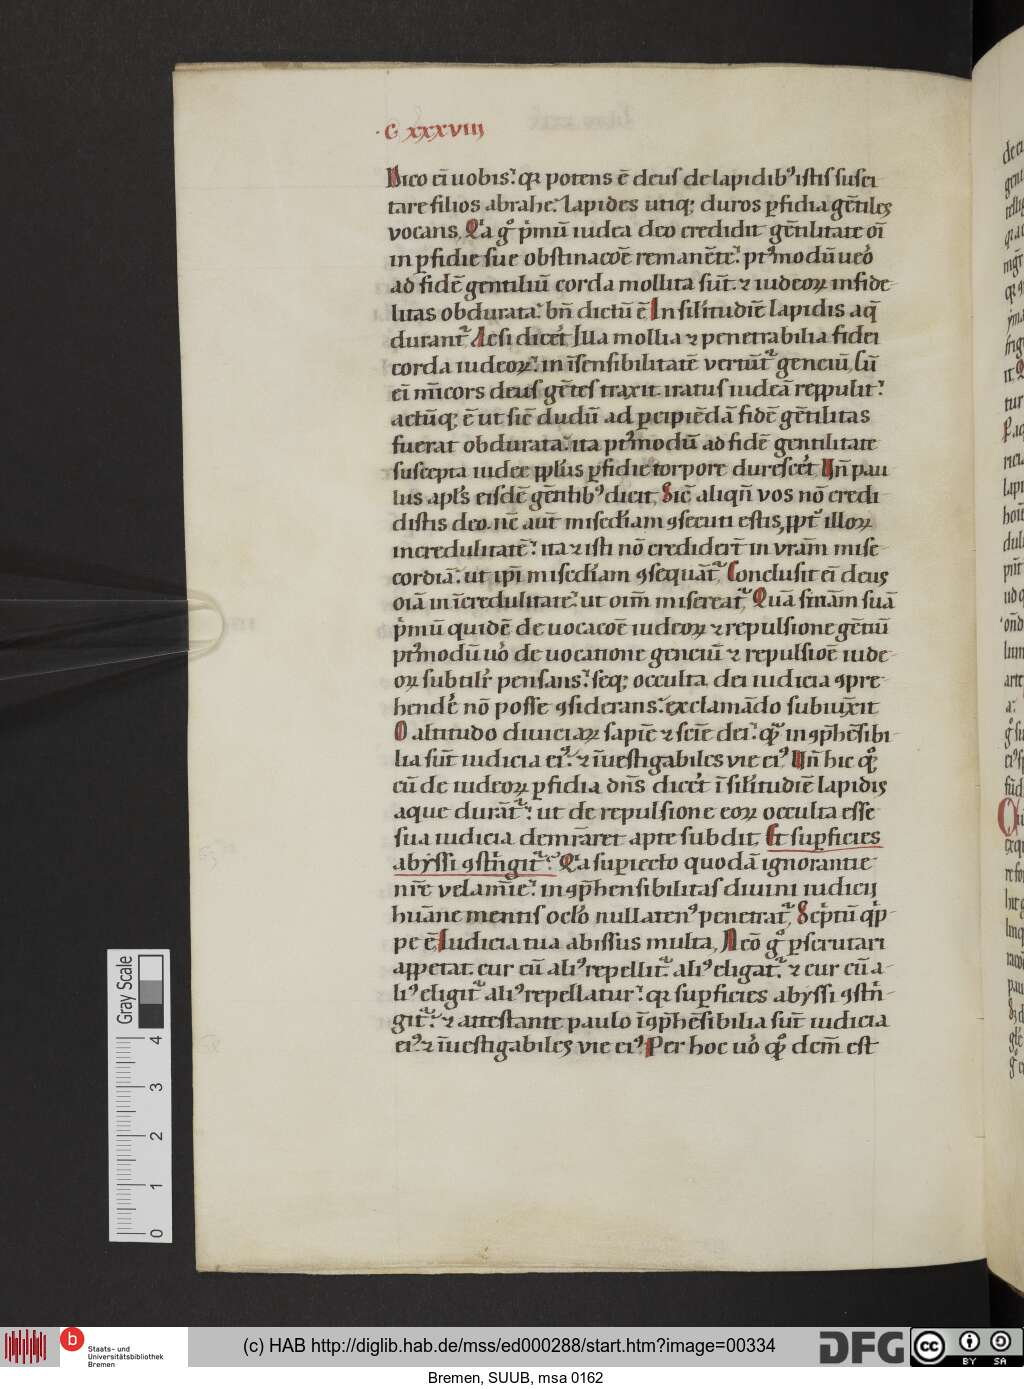 · C xxxviiij
Dico ei̅ uobis. qꝛ potens e̅ deus de lapidibꝰ istis susci
tare filios abrahe. Lapides utiqꝫ duros ꝑfidia ge̅tiles
vocans. Qͥa gͦ pͥmu̅ iudea deo credidit ge̅tilitate oi̅
in ꝑfidie sue obstinac̅oe̅ remane̅te. pꝰt̾modu̅ ueͦ
ad fide̅ gentiliu̅ corda mollita su̅t. ⁊ iudeoꝝ infide-
litas obdurata. bn̅ dictu̅ e̅ In sil̾itudie̅ lapidis aq̅
durant᷑. Ac si dicet̾ Illa mollia ⁊ penetrabilia fidei
corda iudeoꝝ. in i̅sensibilitate̅ vertu̅t᷑ genciu̅. Cu̅
ei̅ mi̅cors deus ge̅tes traxit. iratus iudea̅ reppulit.
actu̅qꝫ e̅ ut sic̅ dudu̅ ad ꝑcipie̅da̅ fide̅ ge̅tilitas
fuerat obdurata. ita pꝰt̾modu̅ ad fide̅ gentilitate
suscepta iudee ppl̾us ꝑfidie torpore duresce̾t. Un̅ pau
lus apl̾s eisde̅ ge̅tilibꝰ dicit. Sic̅ aliqn̅ vos no̅ credi
distis deo. nc̅ aut̅ mise̾cdiam ꝯsecuti estis, ꝓpt̾ illoꝝ
incredulitate̅. ita ⁊ isti no̅ credider̅t in vr̅am mise-
cordia̅. ut ip̅i mise̾cdiam ꝯsequa̅t᷑. Conclusit ei̅ deus
oi̅a in i̅credulitate. ut oi̅m misereat᷑. Qua̅ sn̅iam sua̅
pͥmu̅ quide̅ de uocac̅oe̅ iudeoꝝ ⁊ repulsione ge̅tiu̅
pꝰt̾modu̅ uͦo de uocatione genciu̅ ⁊ repulsioe̅ iude-
oꝝ subtilit̾ pensans. seqꝫ occulta dei iudicia ꝯpre-
hende̾ no̅ posse ꝯsiderans. exclama̅do subiu̅xit
O altitudo diuiciaꝝ sapie̅ ⁊ scie̅ dei. qͣ in ꝯp̅he̅sibi-
lia su̅t iudicia eiꝰ. ⁊ i̅uestigabiles vie eiꝰ. Un̅ hic qͦ
cu̅ de iudeoꝝ ꝑfidia dn̅s dicet̾ i̅ sil̾itudie̅ lapidis
aque dura̅t᷑. ut de repulsione eoꝝ occulta esse
sua iudicia demr̅aret apte subdit. Et suꝑficies
abyssi ꝯstͥngit᷑. Qͥa suꝑiecto quoda̅ ignorantie
nr̅e velami̅e. in ꝯp̅hensibilitas diuini iudicij
hua̅ne mentis oclͦo nullatenꝰ penetrat᷑. Scͥptu̅ qͥp-
pe e̅. Iudicia tua abissus multa. Neo̅ gͦ ꝑscrutari
appetat. cur cu̅ aliꝰ repellit᷑. aliꝰ eligat᷑. ⁊ cur cu̅ a-
liꝰ eligit᷑ aliꝰ repellatur. qꝛ suꝑficies abyssi ꝯstͥn-
git᷑. ⁊ attestante paulo i̅ꝯp̅he̅sibilia su̅t iudicia
eiꝰ. ⁊ i̅uestigabiles vie eiꝰ. Per hoc uͦo qͦ dem̅ est
Gray Scale
0 1 2 3 4
b Staats- und
Universitätsbibliothek
Bremen
(c) HAB http://diglib.hab.de/mss/ed000288/start.htm?image=00334
DFG
cc BY SA
Bremen, SUUB, msa 0162